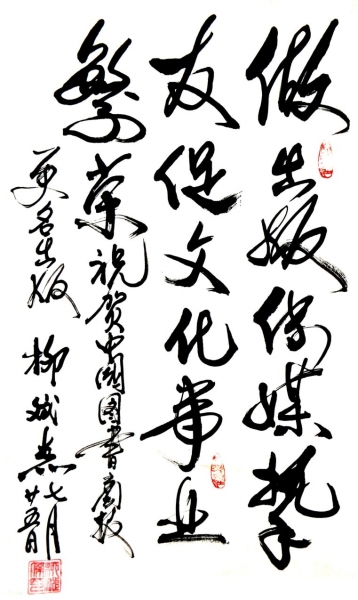 做出版传媒挚
友促文化事业
繁荣祝贺中国图书商报
更名出版
柳斌杰七月
廿五日